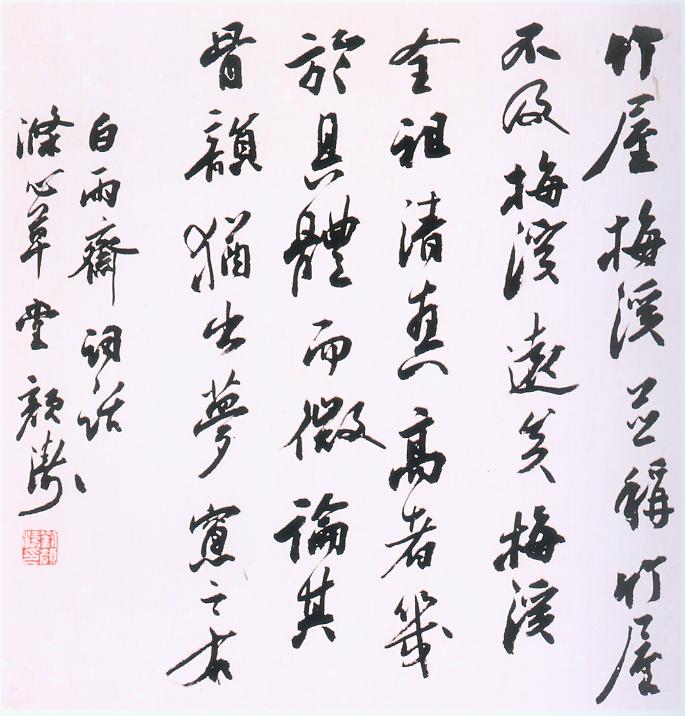 竹屋梅溪並稱竹屋
不及梅溪遠矣梅溪
全祖清真高者幾
於具體而微論其
骨韻猶出夢窗之右
白雨齋詞話
滌心草堂顏濤